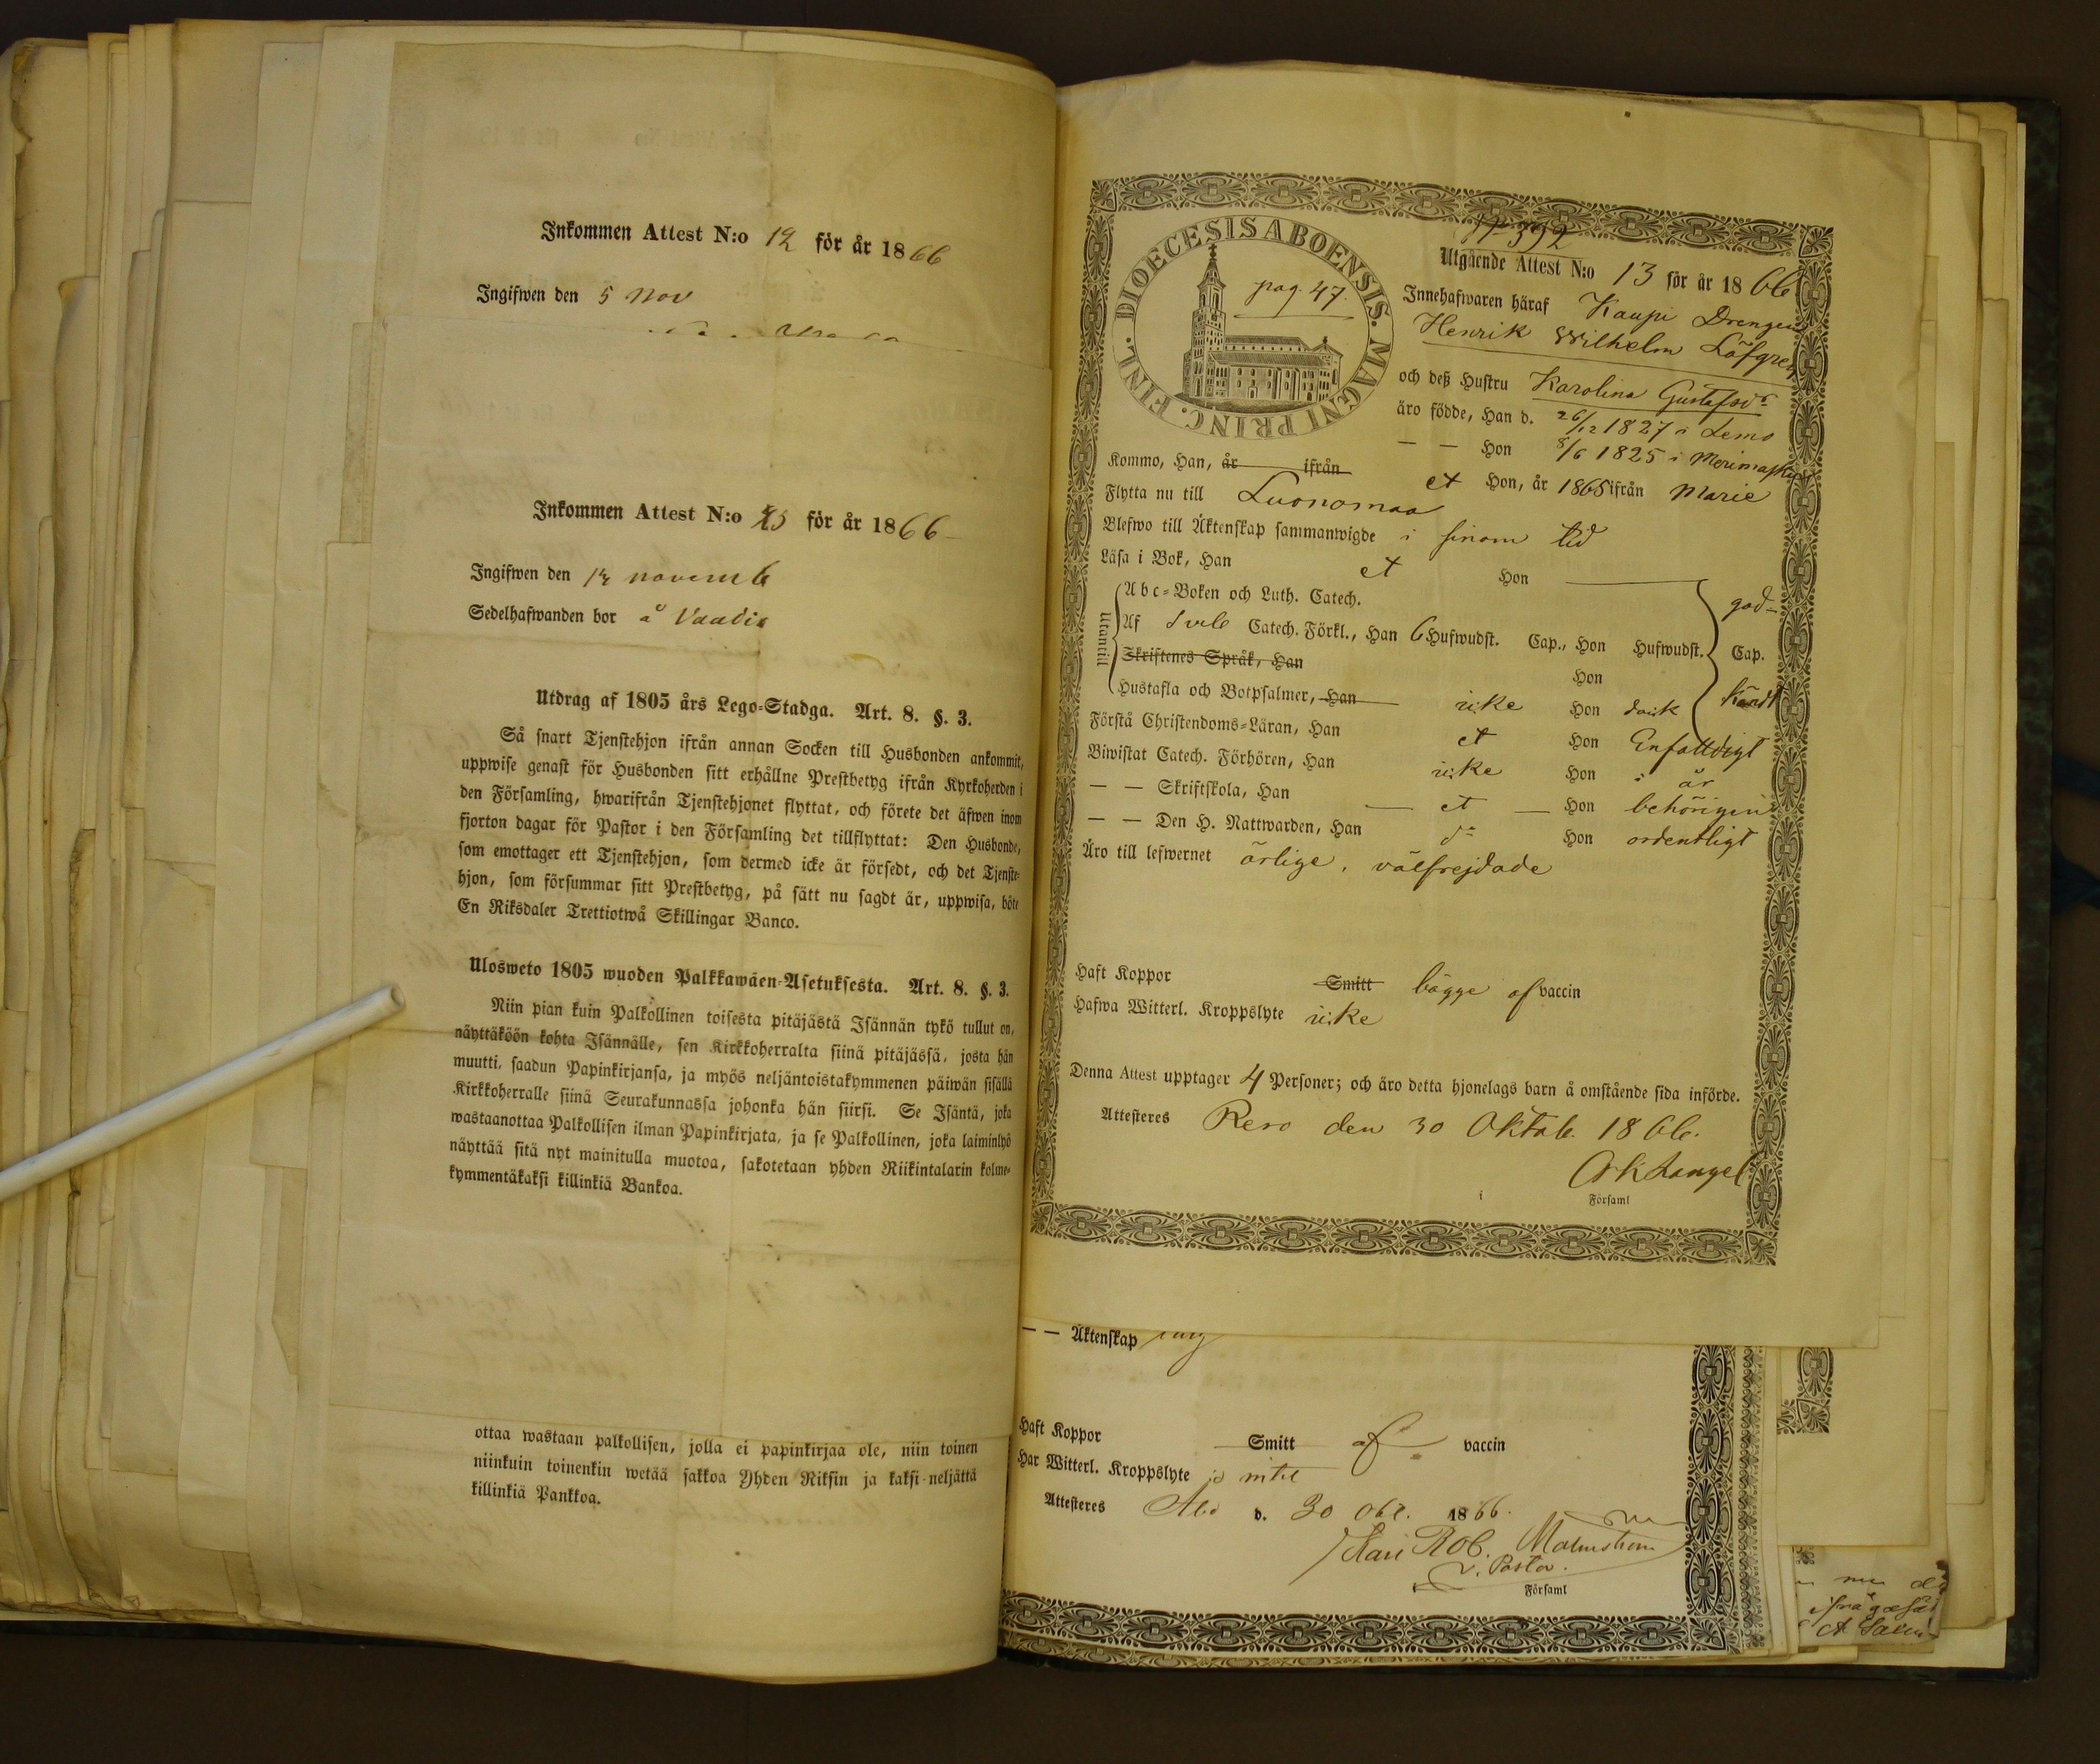 Inkommen Attest N:o 12 för år 1866
Ingifwen den 5 Nov
Inkommen Attest N:o 15 för år 1866
Ingifwen den 12 novemb
Sedelhafwanden bor å Vaadia
Utdrag af 1805 års Lego-Stadga. Art. 8. §. 3.
Så snart Tjenstehjon ifrån annan Socken till Husbonden ankommit,
uppwise genast för Husbonden sitt erhållne Prestbetyg ifrån Kyrkoherden i
den Församling, hwarifrån Tjenstehjonet flyttat, och förete det äfwen inom
fjorton dagar för Pastor i den Församling det tillflyttat: Den Husbonde,
som emottager ett Tjenstehjon, som dermed icke är försedt, och det Tjenste-
hjon, som försummar sitt Prestbetyg, på sätt nu sagdt är, uppwisa, böte
En Riksdaler Trettiotwå Skillingar Banco.
Ulosweto 1805 wuoden Palkkawäen-Asetuksesta. Art. 8. §. 3.
Niin pian kuin Palkollinen toisesta pitäjästä Isännän tykö tullut on,
näyttäköön kohta Isännälle, sen Kirkkoherralta siinä pitäjässä, josta hän
muutti, saadun Papinkirjansa, ja myös neljäntoistakymmenen päiwän sisällä
Kirkkoherralle siinä Seurakunnassa johonka hän siirsi. Se Isäntä, joka
wastaanottaa Palkollisen ilman Papinkirjata, ja se Palkollinen, joka laiminlyö
näyttää sitä nyt mainitulla muotoa, sakotetaan yhden Riikintalarin kolme-
kymmentäkaksi killinkiä Bankoa.
ottaa wastaan palkollisen, jolla ei papinkirjaa ole, niin toinen
niinkuin toinenkin wetää sakkoa Yhden Riksin ja kaksi neljättä
killinkiä Pankkoa.
DIOECESIS ABOENSIS. MAGNI PRINC. FINL.
pag. 47.
N 392
Utgående Attest N:o 13 för år 1866
Innehafwaren häraf Kaupi Drengen
Henrik Wilhelm Löfgren
och deß Hustru Karolina Gustafsdr
äro födde, Han d. 26/12 1827 i Lemo
— — Hon 8/6 1825 i Merimasku
Kommo, Han, år ifrån et Hon, år 1865 ifrån Marie
Flytta nu till Luonomaa
Blefwo till Äktenskap sammanwigde i sinom tid
Läsa i Bok, Han et Hon
Utantill
Abc-Boken och Luth. Catech.
Af Sveb Catech. Förkl., Han 6 Hufwudst. Cap., Hon Hufwudst. Cap.
god
Skriftenes Språk, Han Hon
Hustafla och Botpsalmer, Han icke Hon
Förstå Christendoms-Läran, Han et Hon Enfaldigt
Biwistat Catech. Förhören, Han icke Hon i år
— — Skriftskola, Han — et — Hon behörigen
— — Den H. Nattwarden, Han Hon ordentligt
Äro till lefwernet ärlige, välfrejdade
Haft Koppor Smitt bägge af vaccin
Hafwa Witterl. Kroppslyte icke
Denna Attest upptager 4 Personer; och äro detta hjonelags barn å omstående sida införde.
Attesteres Reso den 30 Oktob. 1866.
i Församl
— — Äktenskap
Haft Koppor Smitt af vaccin
Har Witterl. Kroppslyte
Attesteres Åbo d. 30 Obr. 1866.
Karl Rob. Malmström
v. Pastor.
Församl